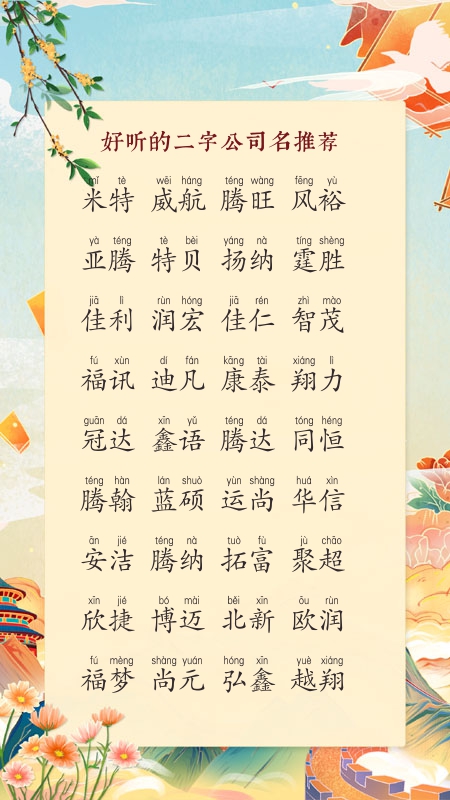 好听的二字公司名推荐
mǐ tè wēi háng téng wàng fēng yù
米特 威航 腾旺 风裕
yà téng tè bèi yáng nà tíng shèng
亚腾 特贝 扬纳 霆胜
jiā lì rùn hóng jiā rén zhì mào
佳利 润宏 佳仁 智茂
fú xùn dí fán kāng tài xiáng lì
福讯 迪凡 康泰 翔力
guān dá xīn yǔ téng dá tóng héng
冠达 鑫语 腾达 同恒
téng hàn lán shuò yùn shàng huá xìn
腾翰 蓝硕 运尚 华信
ān jié téng nà tuò fù jù chāo
安洁 腾纳 拓富 聚超
xīn jié bó mài běi xīn ōu rùn
欣捷 博迈 北新 欧润
fú mèng shàng yuán hóng xīn yuè xiáng
福梦 尚元 弘鑫 越翔